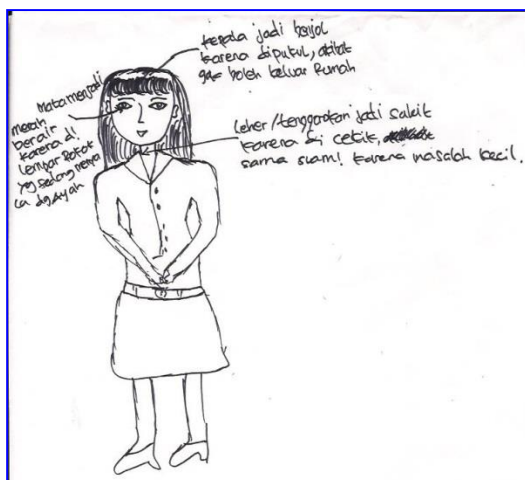 kepala jadi benjol
karena dipukul, akibat
gak boleh keluar Rumah
mata menjadi
merah
berair
karena di
lempar Rokok
yg sedang menya
la dg Ayah
Leher/tenggorokan jadi sakit
karena di cekik,
sama suami karena masalah kecil.